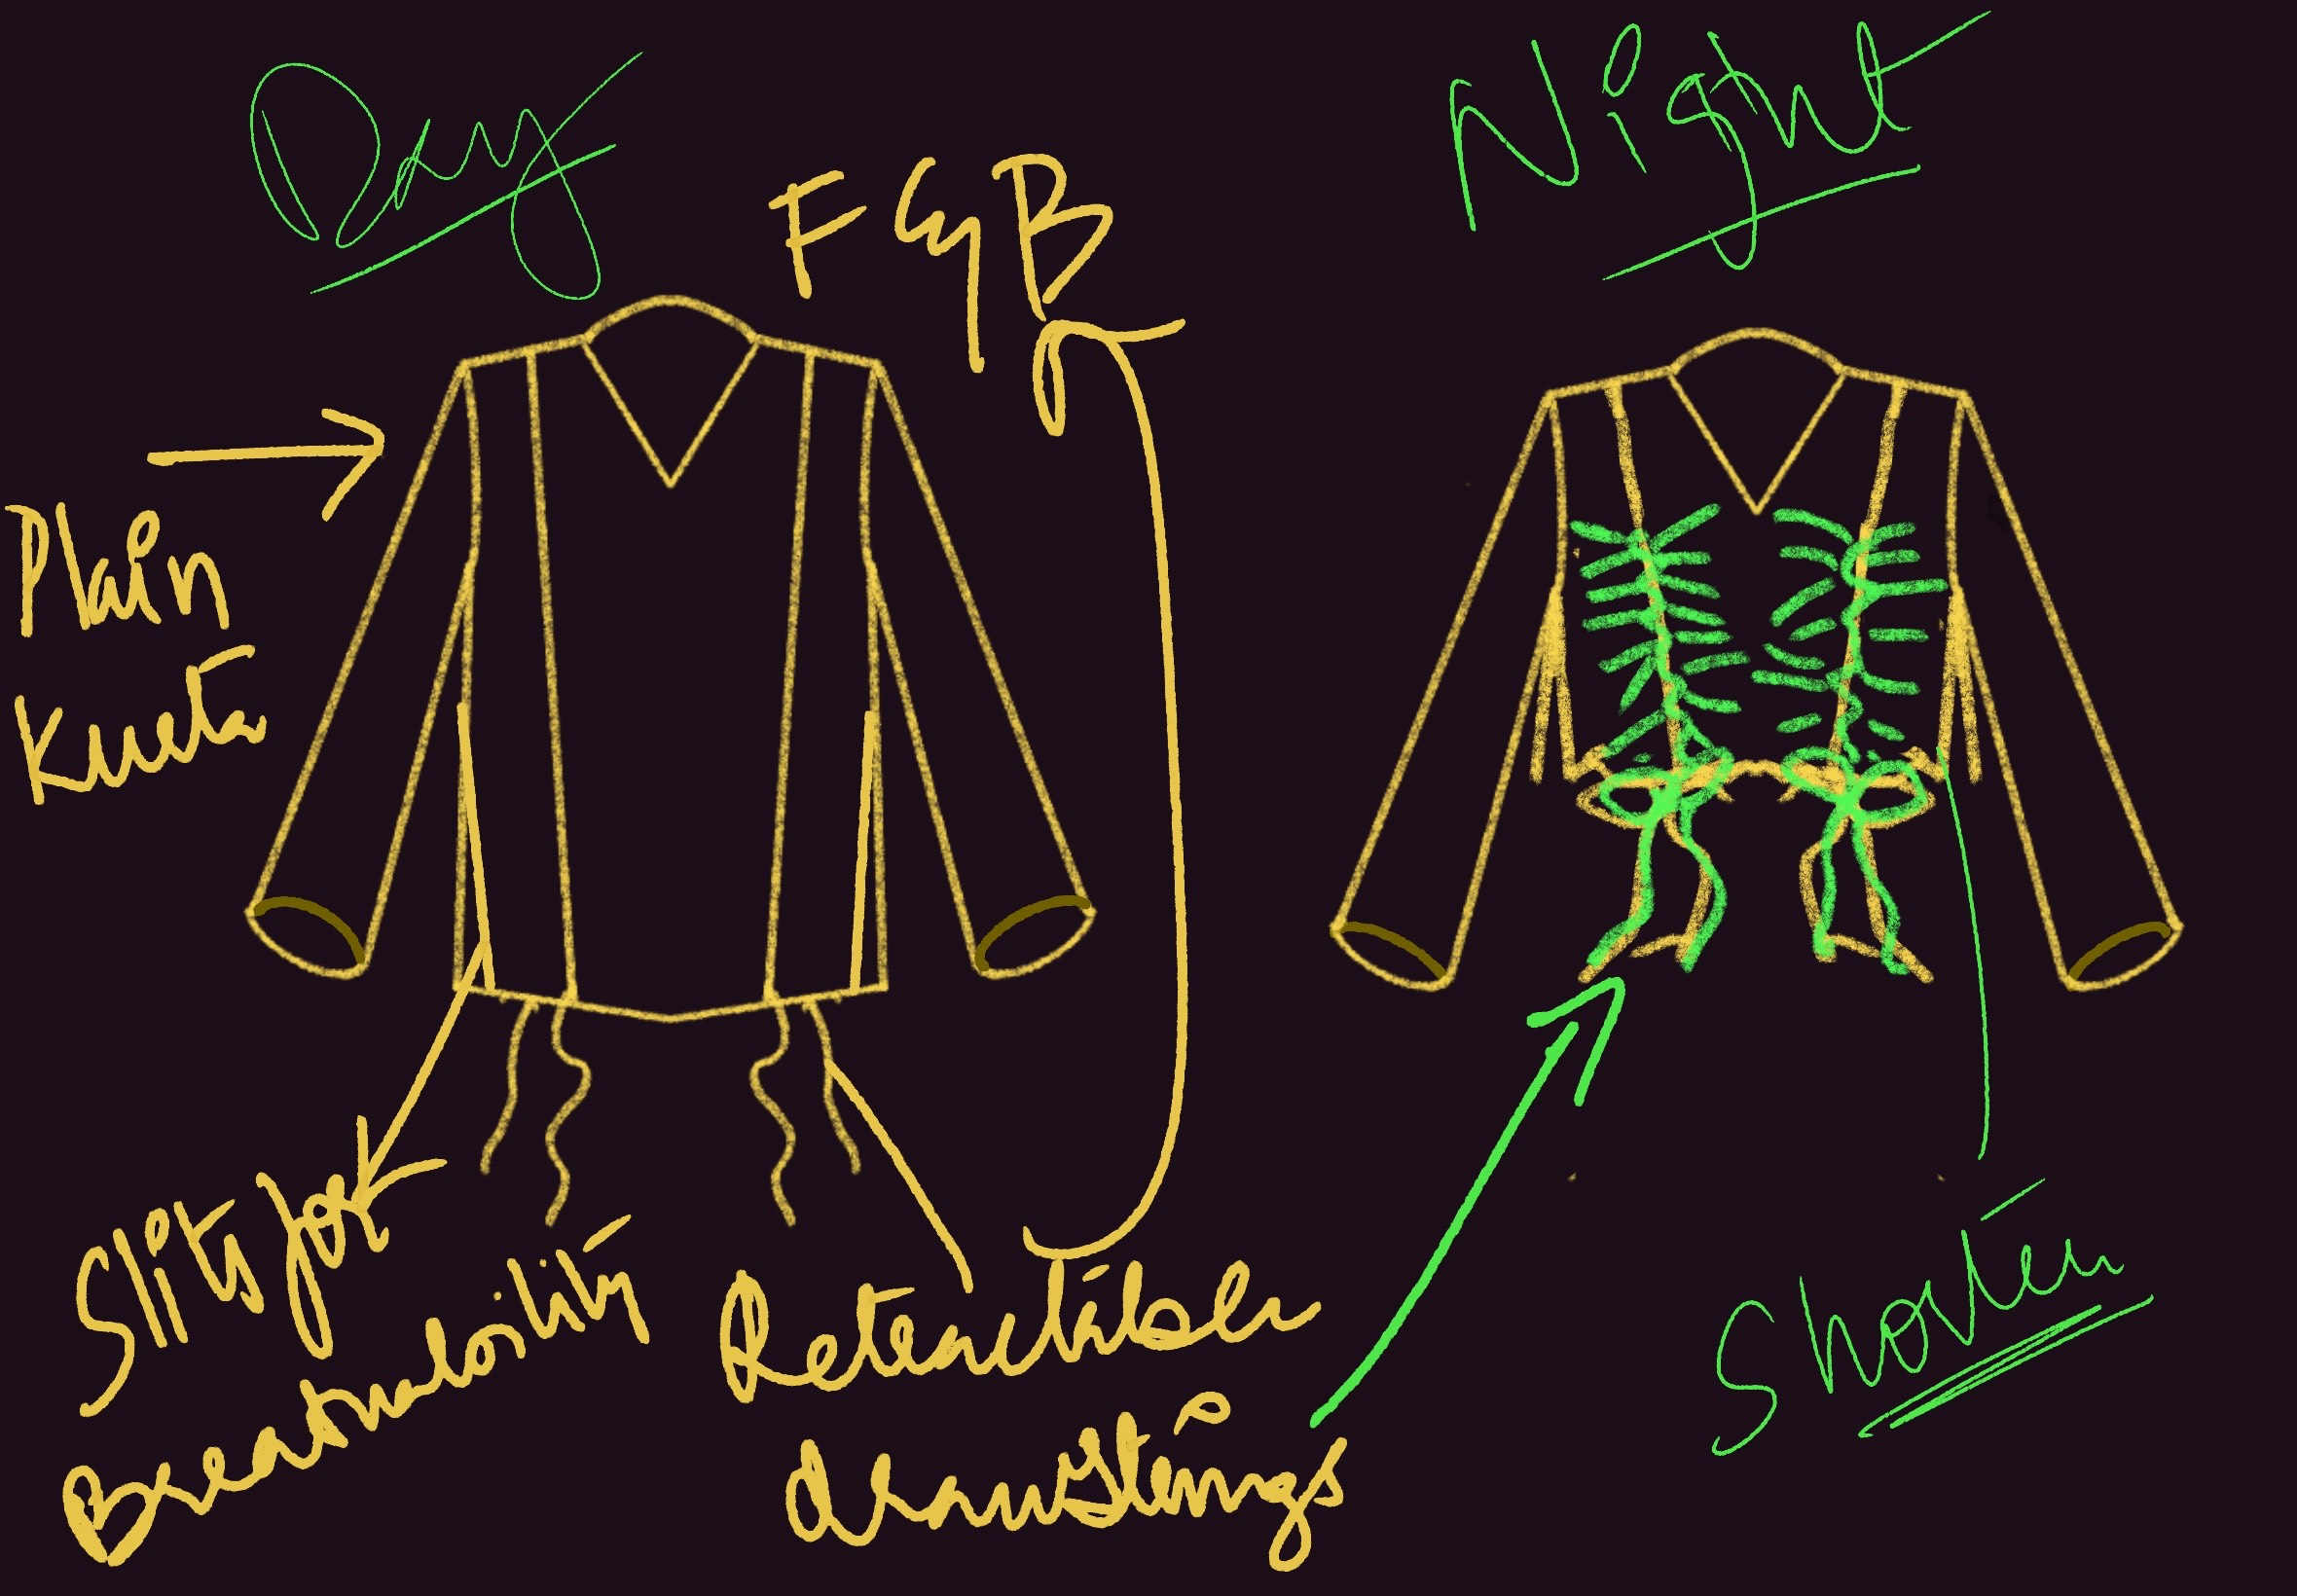 Day
Night
F & B
Plain
Kurta
Slits for
Breathability
Retractable
drawstrings
Shorten